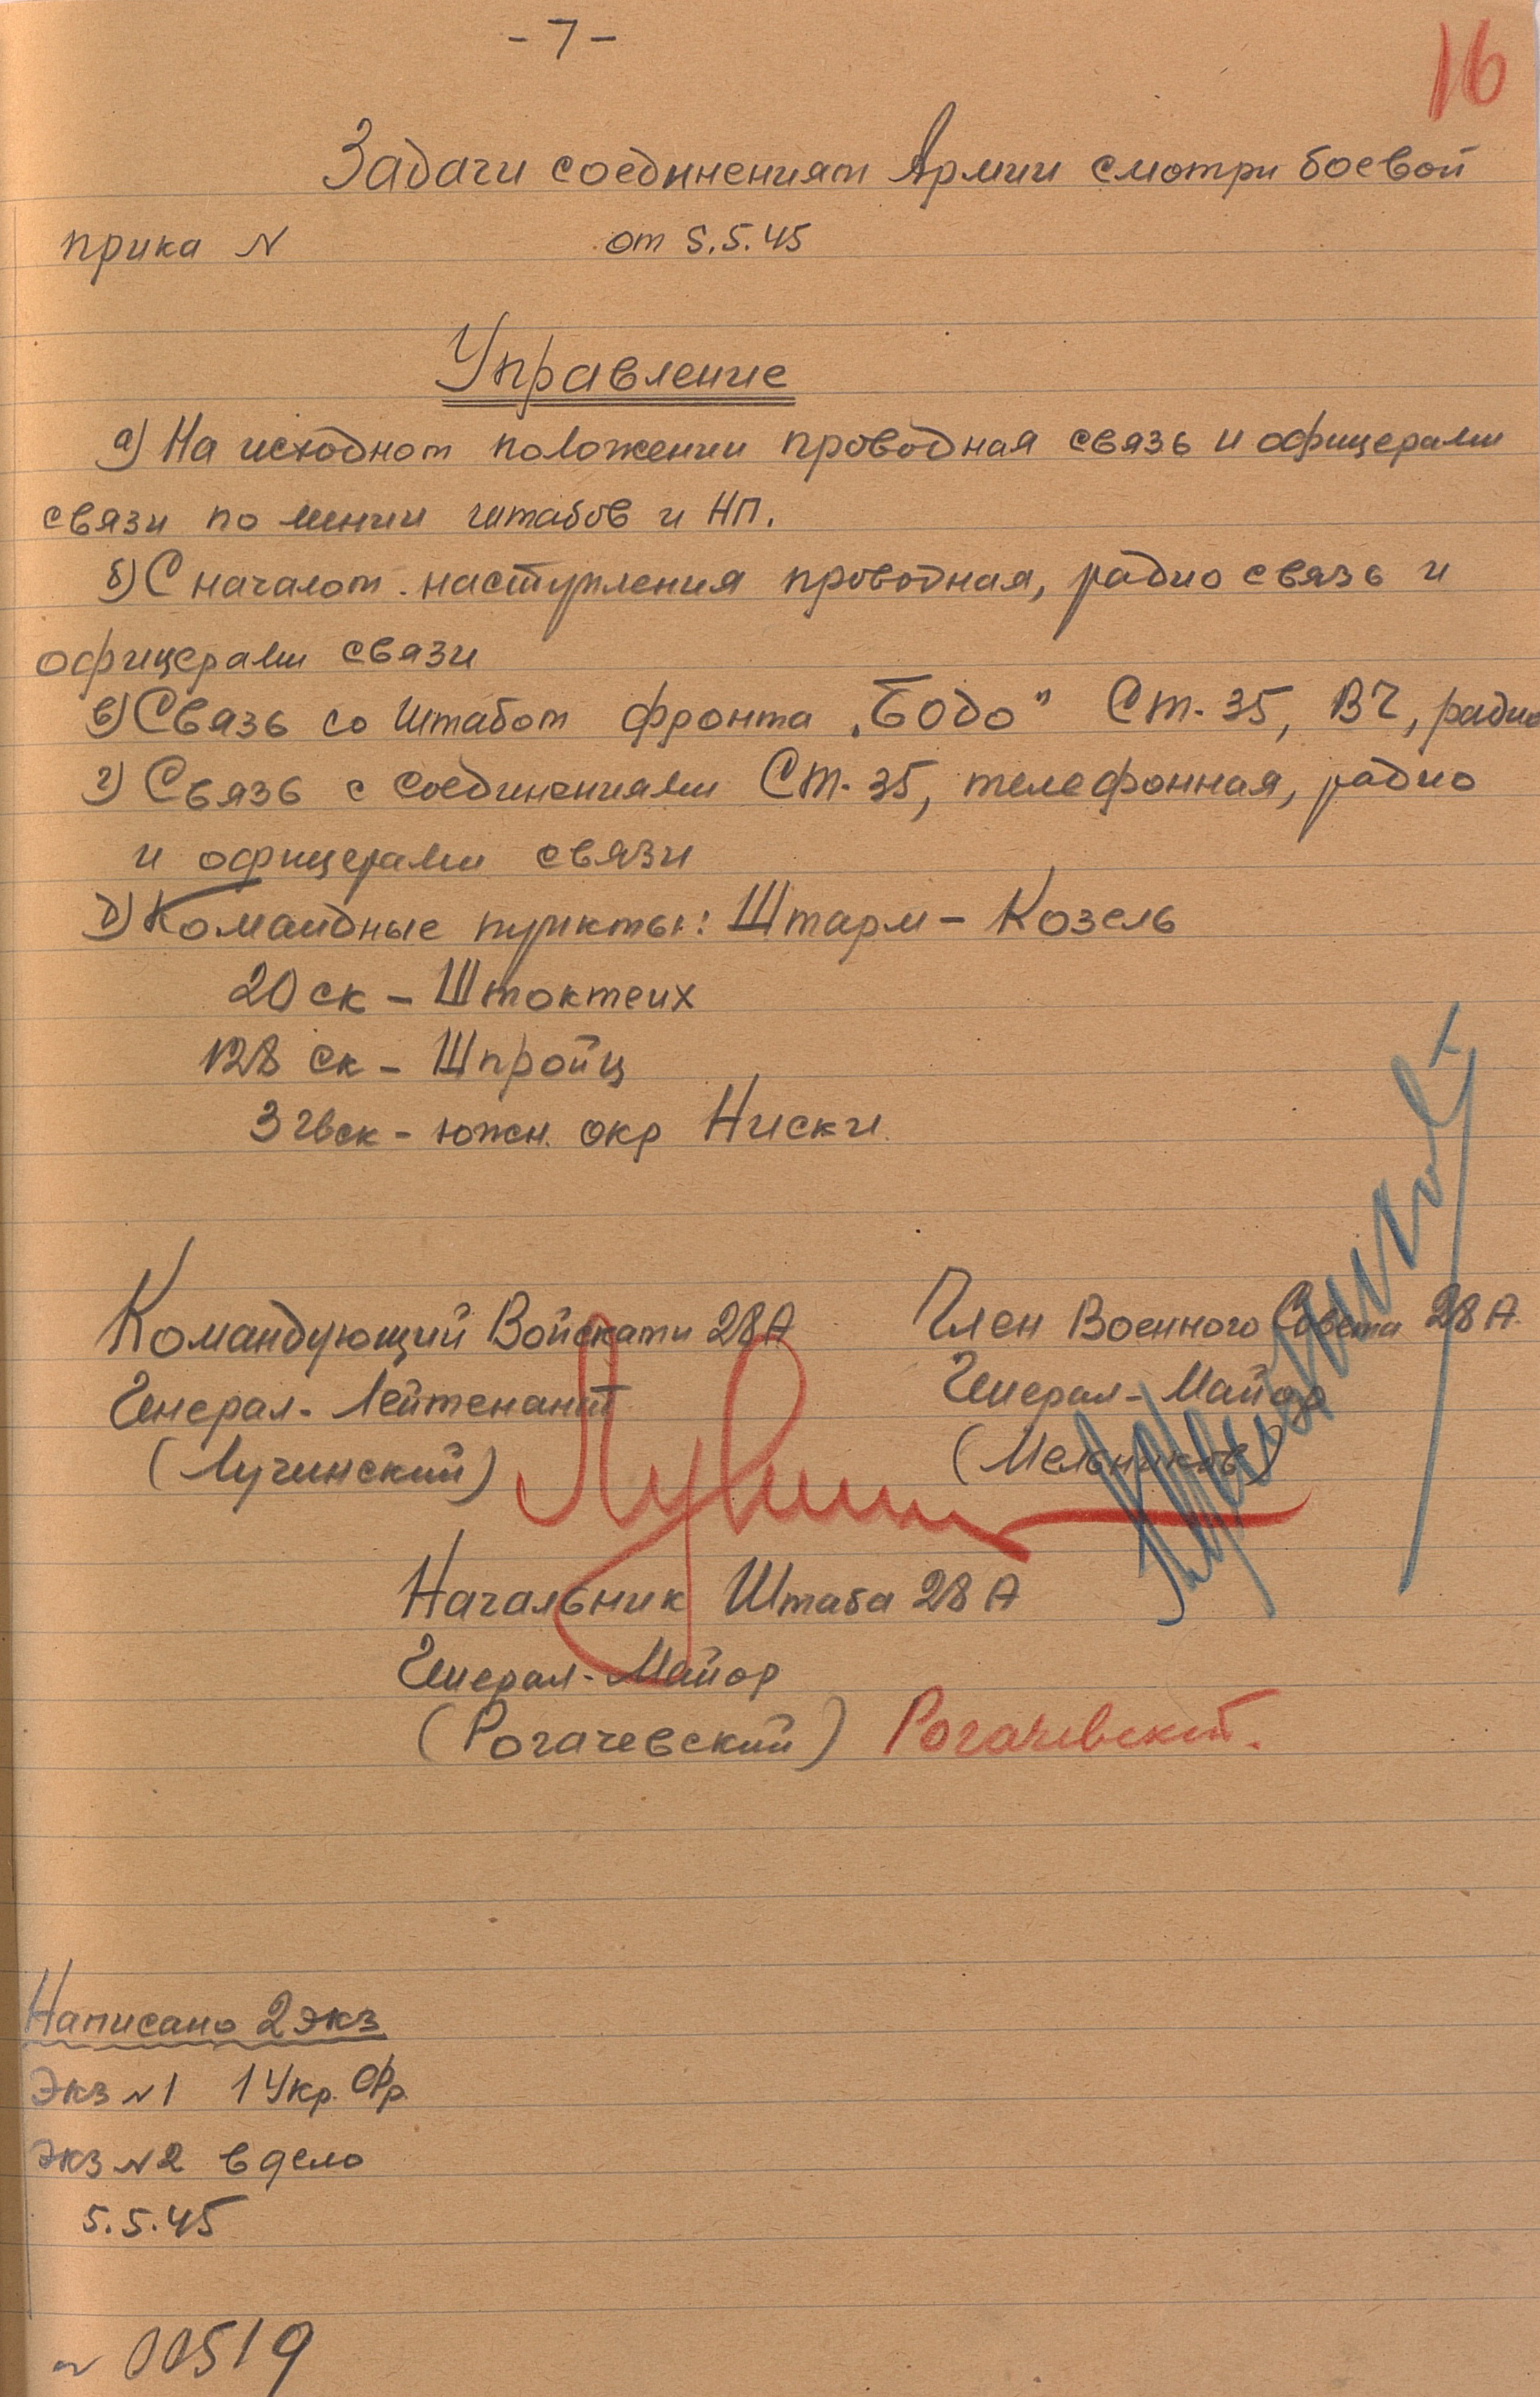 - 7 -
16
Задачи соединениям Армии смотри боевой
прика N от 5.5.45
Управление
а) На исходном положении проводная связь и офицерами
связи по линии штабов и НП.
б) С началом наступления проводная, радио связь и
офицерами связи
в) Связь со штабом фронта „Бодо" Ст-35, ВЧ, радио
г) Связь с соединениями Ст-35, телефонная, радио
и офицерами связи
д) Командные пункты: Штарм - Козель
20 ск - Штоктеих
128 ск - Шпройц
3 гвск - южн. окр Ниски
Командующий Войсками 28 А
Генерал-Лейтенант
(Лучинский)
Член Военного Совета 28 А.
Генерал-Майор
(Мельников)
Начальник Штаба 28 А
Генерал-Майор
(Рогачевский) Рогачевский.
Написано 2 экз
Экз N 1 1 Укр. Фр.
Экз N 2 в дело
5.5.45
N 00519